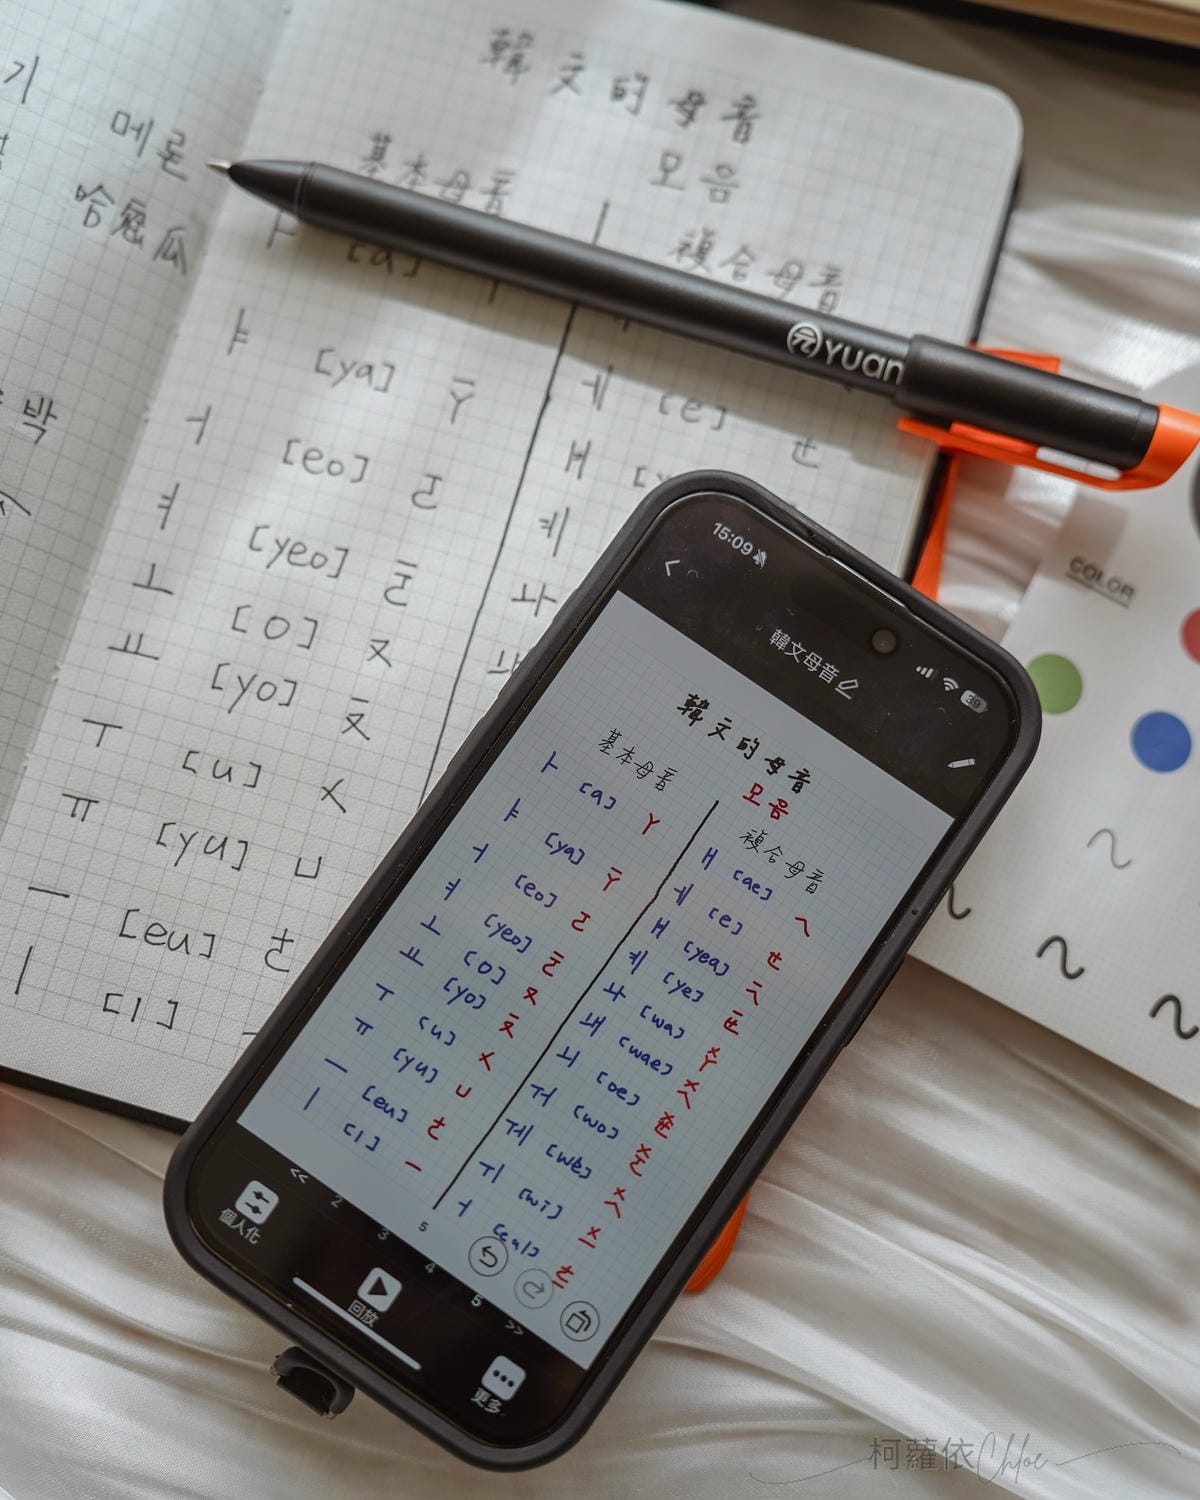 기
메론
哈密瓜
박
韓文的母音
모음
基本母音
複合母音
ㅏ [a]
ㅑ [ya] ㄧㄚ
ㅓ [eo] ㄛ
ㅕ [yeo] ㄧㄛ
ㅗ [o] ㄡ
ㅛ [yo] ㄧㄡ
ㅜ [u] ㄨ
ㅠ [yu] ㄩ
ㅡ [eu] ㄜ
ㅣ [i]
ㅔ [e] ㄝ
ㅒ
ㅖ
ㅘ
元 YUAN
COLOR
15:09
39
韓文母音
韓文的母音
모음
基本母音
ㅏ [a] ㄚ
ㅑ [ya] ㄧㄚ
ㅓ [eo] ㄛ
ㅕ [yeo] ㄧㄛ
ㅗ [o] ㄡ
ㅛ [yo] ㄧㄡ
ㅜ [u] ㄨ
ㅠ [yu] ㄩ
ㅡ [eu] ㄜ
ㅣ [i] ㄧ
複合母音
ㅐ [ae] ㄟ
ㅔ [e] ㄝ
ㅒ [yea] ㄧㄟ
ㅖ [ye] ㄧㄝ
ㅘ [wa] ㄨㄚ
ㅙ [wae] ㄨㄟ
ㅚ [oe] ㄨㄝ
ㅝ [wo] ㄨㄛ
ㅞ [we] ㄨㄟ
ㅟ [wi] ㄨㄧ
2 3 4 5
5
個人化
回放
更多
柯蘿依Chloe